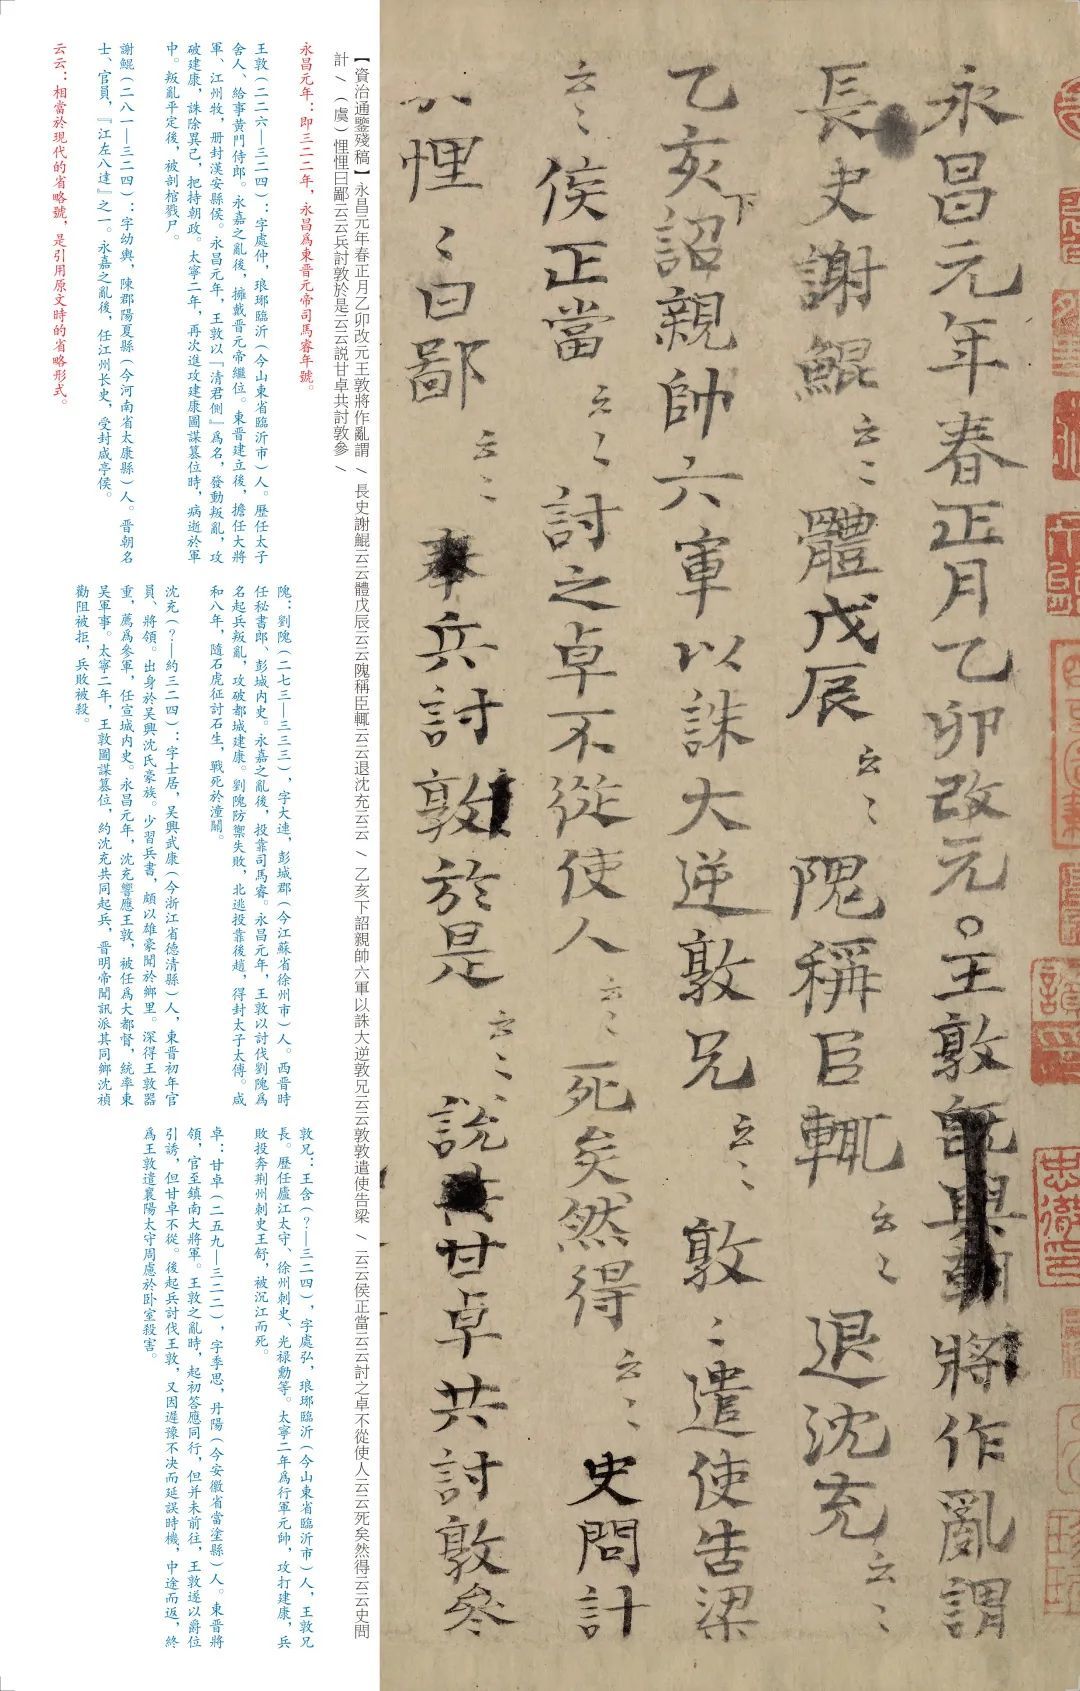 永昌元年春正月乙卯改元○王敦將作亂謂
長史謝鯤云〻體戊辰云〻隗稱臣輒云〻退沈充云〻
乙亥下詔親帥六軍以誅大逆敦兄云〻敦〻遣使告梁
云〻侯正當云〻討之卓不從使人云〻死矣然得云〻史問計
悝〻曰鄙云〻兵討敦於是云〻說甘卓共討敦參
【資治通鑒殘稿】永昌元年春正月乙卯改元王敦將作亂謂/長史謝鯤云云體戊辰云云隗稱臣輒云云退沈充云云/乙亥下詔親帥六軍以誅大逆敦兄云云敦敦遣使告梁/云云侯正當云云討之卓不從使人云云死矣然得云云史問
計/（虞）悝悝曰鄙云云兵討敦於是云云説甘卓共討敦參/
永昌元年：即三二二年，永昌爲東晉元帝司馬睿年號。
王敦（二六六—三二四）：字處仲，琅琊臨沂（今山東省臨沂市）人。歷任太子
舍人、給事黃門侍郎。永嘉之亂後，擁戴晉元帝繼位。東晉建立後，擔任大將
軍、江州牧，册封漢安縣侯。永昌元年，王敦以『清君側』爲名，發動叛亂，攻
破建康，誅除異己，把持朝政。太寧二年，再次進攻建康圖謀篡位時，病逝於軍
中。叛亂平定後，被剖棺戮尸。
謝鯤（二八一—三二四）：字幼輿，陳郡陽夏縣（今河南省太康縣）人。晉朝名
士、官員，『江左八達』之一。永嘉之亂後，任江州长史，受封咸亭侯。
云云：相當於現代的省略號，是引用原文時的省略形式。
隗：劉隗（二七三—三三三），字大連，彭城郡（今江蘇省徐州市）人。西晉時
任秘書郎、彭城内史。永嘉之亂後，投靠司馬睿。永昌元年，王敦以討伐劉隗爲
名起兵叛亂，攻破都城建康。劉隗防禦失敗，北逃投靠後趙，得封太子太傅。咸
和八年，隨石虎征討石生，戰死於潼關。
沈充（？—約三二四）：字士居，吴興武康（今浙江省德清縣）人，東晉初年官
員、將領。出身於吴興沈氏豪族。少習兵書，頗以雄豪聞於鄉里。深得王敦器
重，薦爲參軍，任宣城内史。永昌元年，沈充響應王敦，被任爲大都督，統率東
吴軍事。太寧二年，王敦圖謀篡位，約沈充共同起兵，晉明帝聞訊派其同鄉沈禎
勸阻被拒，兵敗被殺。
敦兄：王含（？—三二四），字處弘，琅琊臨沂（今山東省臨沂市）人，王敦兄
長。歷任廬江太守、徐州刺史、光禄勳等。太寧二年爲行軍元帥，攻打建康，兵
敗投奔荆州刺史王舒，被沉江而死。
卓：甘卓（二五九—三二二），字季思，丹陽（今安徽省當塗縣）人。東晉將
領，官至鎮南大將軍。王敦之亂時，起初答應同行，但并未前往，王敦遂以爵位
引誘，但甘卓不從。後起兵討伐王敦，又因遲豫不决而延誤時機，中途而返，終
爲王敦遣襄陽太守周慮於卧室殺害。